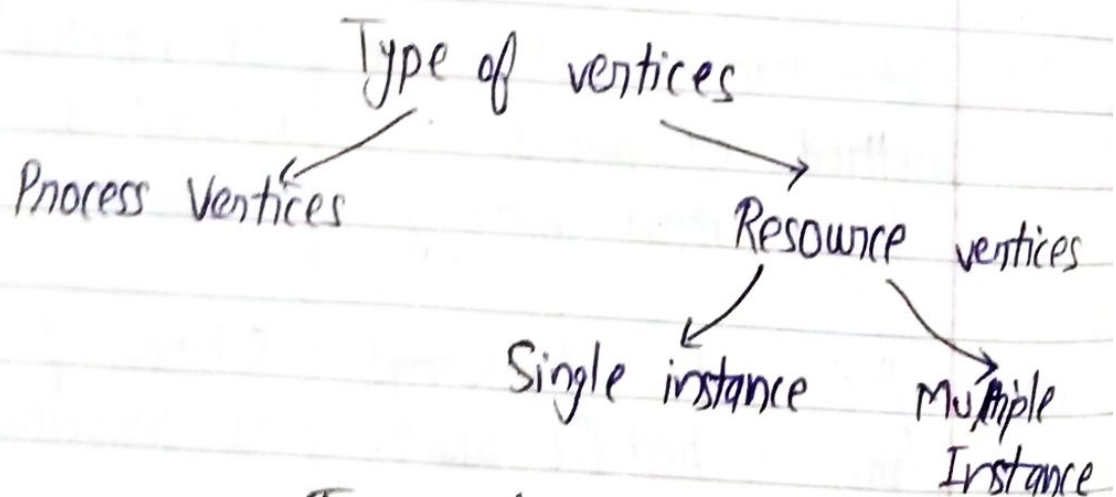 Type of vertices
Process Vertices
Resource vertices
Single instance
Multiple
Instance